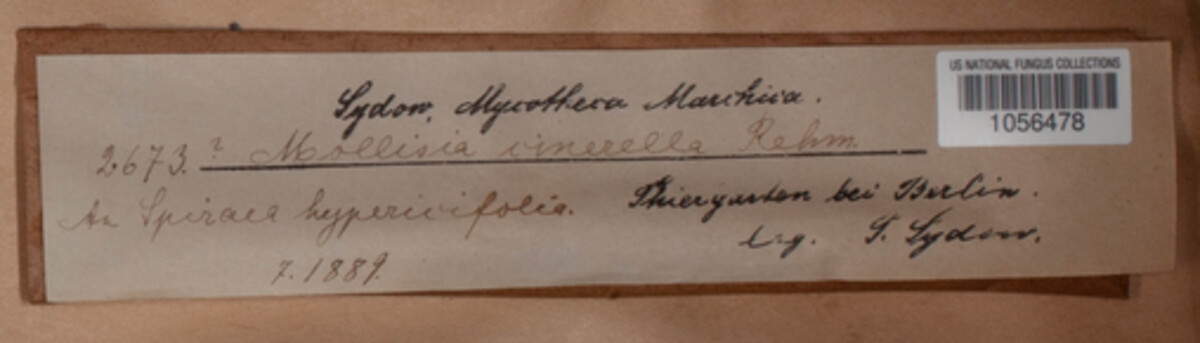 Sydow, Mycotheca Marchica.
US NATIONAL FUNGUS COLLECTIONS
1056478
2673. ? Mollisia cinerella Rehm.
An Spiraea hypericifolia. Thiergarten bei Berlin.
leg. P. Sydow.
7. 1889.